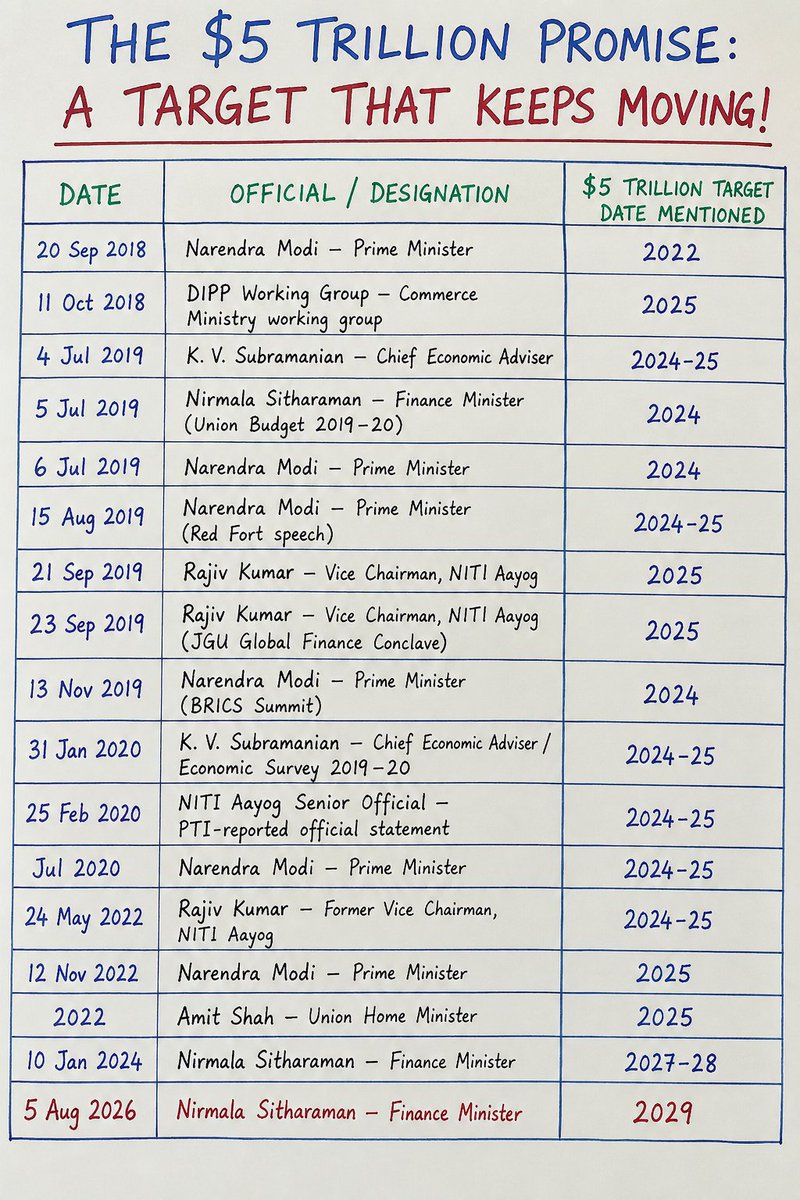 THE $5 TRILLION PROMISE:
A TARGET THAT KEEPS MOVING!
DATE OFFICIAL / DESIGNATION $5 TRILLION TARGET
DATE MENTIONED
20 Sep 2018 Narendra Modi – Prime Minister 2022
11 Oct 2018 DIPP Working Group – Commerce 2025
Ministry working group
4 Jul 2019 K. V. Subramanian – Chief Economic Adviser 2024-25
5 Jul 2019 Nirmala Sitharaman – Finance Minister 2024
(Union Budget 2019-20)
6 Jul 2019 Narendra Modi – Prime Minister 2024
15 Aug 2019 Narendra Modi – Prime Minister 2024-25
(Red Fort speech)
21 Sep 2019 Rajiv Kumar – Vice Chairman, NITI Aayog 2025
23 Sep 2019 Rajiv Kumar – Vice Chairman, NITI Aayog 2025
(JGU Global Finance Conclave)
13 Nov 2019 Narendra Modi – Prime Minister 2024
(BRICS Summit)
31 Jan 2020 K. V. Subramanian – Chief Economic Adviser / 2024-25
Economic Survey 2019-20
25 Feb 2020 NITI Aayog Senior Official – 2024-25
PTI-reported official statement
Jul 2020 Narendra Modi – Prime Minister 2024-25
24 May 2022 Rajiv Kumar – Former Vice Chairman, 2024-25
NITI Aayog
12 Nov 2022 Narendra Modi – Prime Minister 2025
2022 Amit Shah – Union Home Minister 2025
10 Jan 2024 Nirmala Sitharaman – Finance Minister 2027-28
5 Aug 2026 Nirmala Sitharaman – Finance Minister 2029